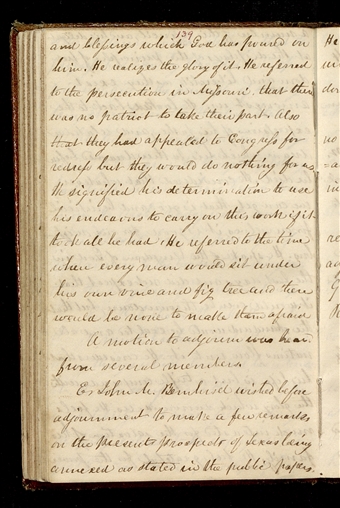 139
and blessings which God has poured on
him. He realizes the glory of it. He referred
to the persecution in Missouri that there
was no patriot to take their part. Also
that they had appealed to Congress for
redress but they would do nothing for us
He signified his determination to use
his endeavors to carry on this work if it
took all he had. He referred to the time
when every man would sit under
his own vine and fig tree and there
would be none to make them afraid
A motion to adjourn was heard
from several members.
Er John M. Bernhisel wished before
adjournment to make a few remarks
on the present prospects of Texas being
annexed as stated in the public papers.
He